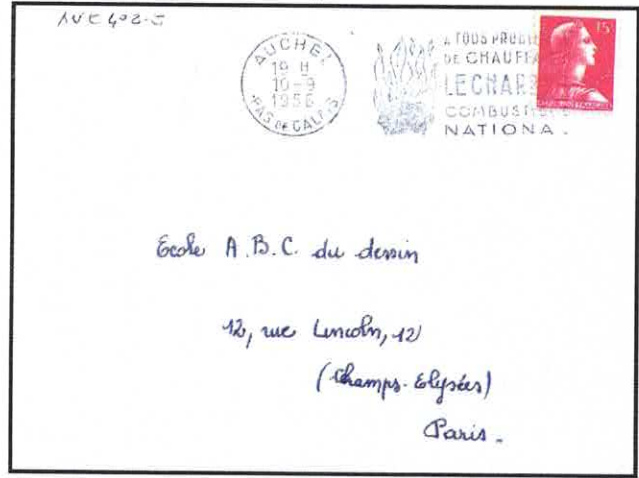 AUCHEL
19 H
10-9
1956
PAS DE CALAIS
A TOUS
DE CHAUFFA
LE CHAR
COMBUST
NATIONA
15F
Ecole A.B.C. du dessin
12, rue Lincoln, 12
(Champs-Elysées)
Paris.